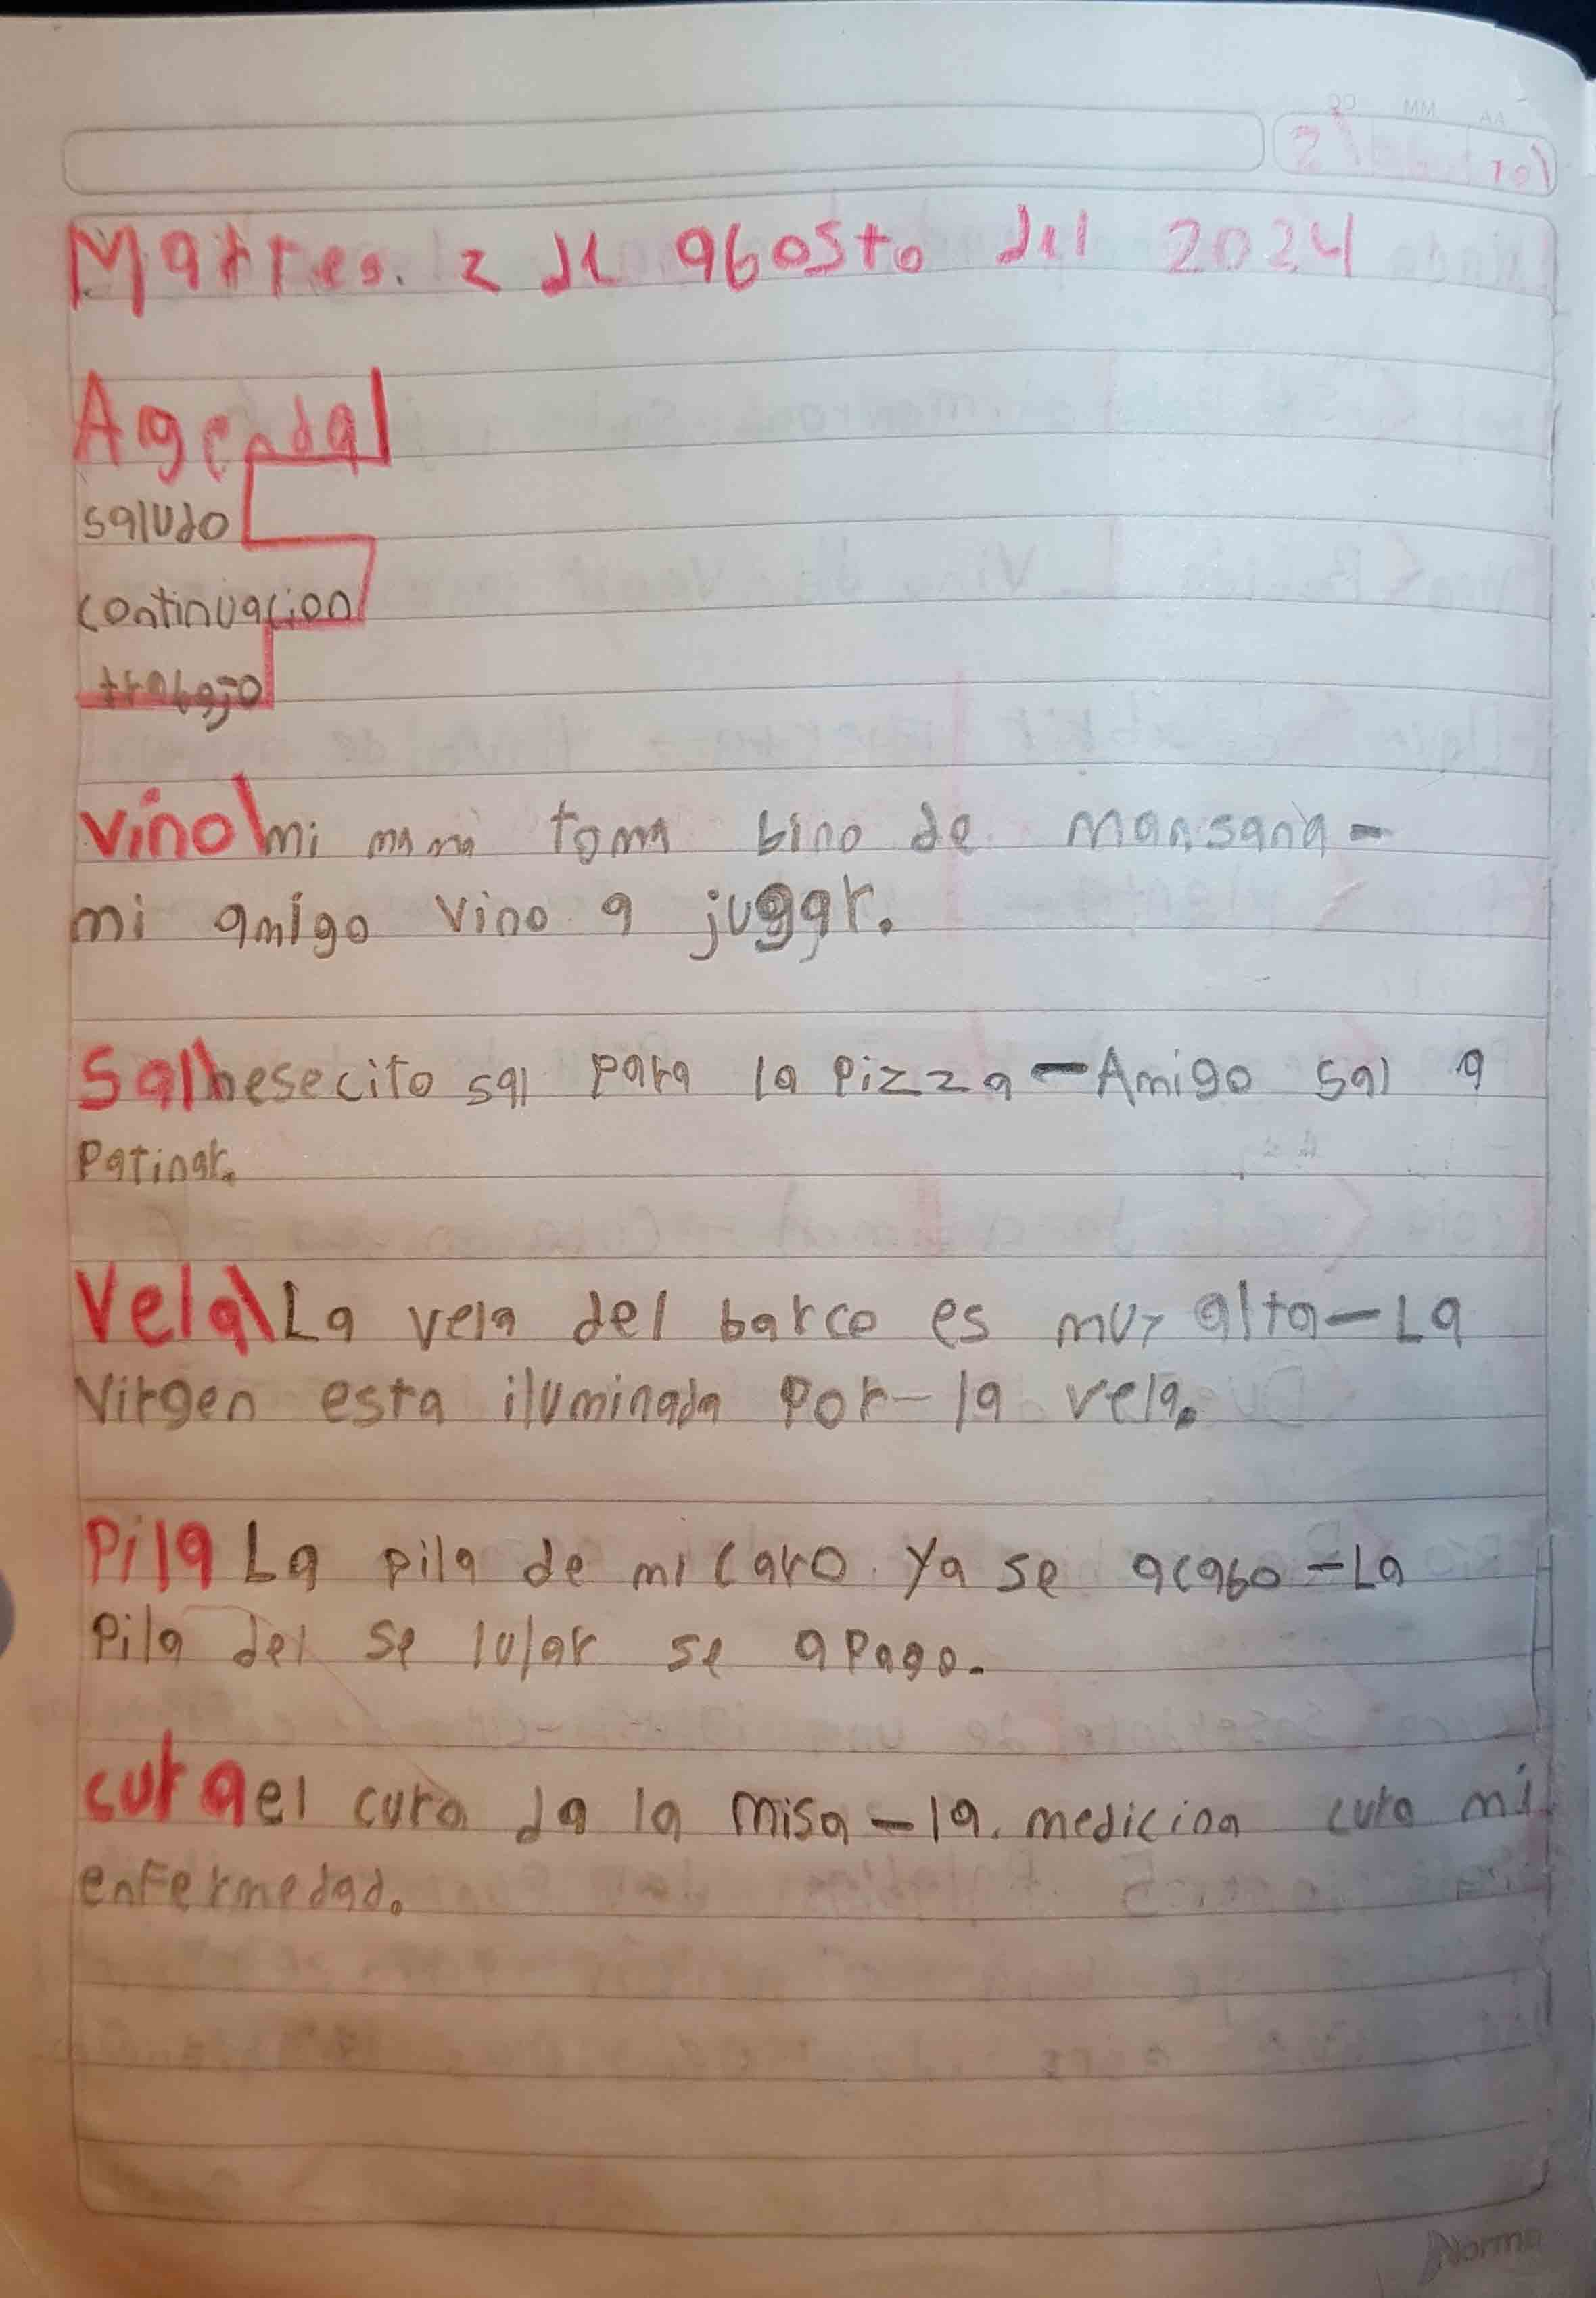 Martes. 2 de agosto del 2024
Agenda
saludo
continuacion
trabajo
vino mi mama toma bino de mansana-
mi amigo vino a jugar.
Sal nesecito sal para la Pizza-Amigo sal a
Patinar.
Vela La vela del barco es muy alta-La
Virgen esta iluminada Por-la vela.
Pila La pila de mi carro. Ya se acabo-La
Pila del se lular se aPago.
cura el cura da la misa-la. medicina cura mi
enfermedad.
Norma